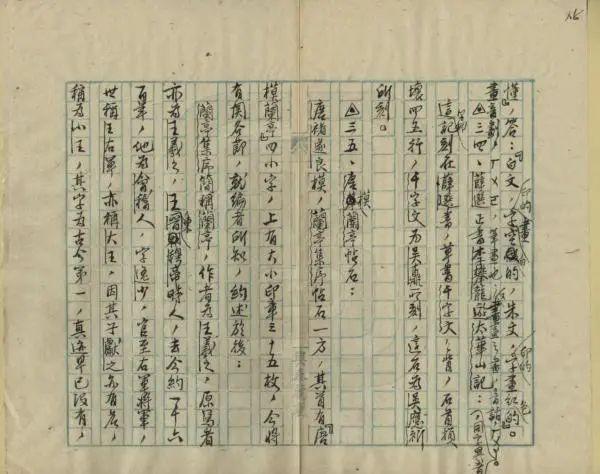 15
懂，答：『白文，字空白的，朱文，字画紅的』。
△三四、薛選正書李攀龍遊太華山記：
這記刻在薛選書，草書千字文，背，石首損
壞四五行，千字文為吳鼒所刻，這石為吳應祈
所刻。
△三五、唐模蘭亭帖石：
唐褚遂良模，蘭亭集序帖石一方，其首有『唐
模蘭亭』四小字，上有大小印章三十五枚，今將
有関各節，就編者所知，約述於後：
蘭亭集序簡稱蘭亭，作者為王羲之，原寫者
亦為王羲之，王羲之東晉時人，去今約一千六
百年，他為會稽人，字逸少，官至右軍將軍，
世稱王右軍，亦稱大王，因其子獻之亦有名，
稱為小王，其字為古今第一，真迹早已沒有，